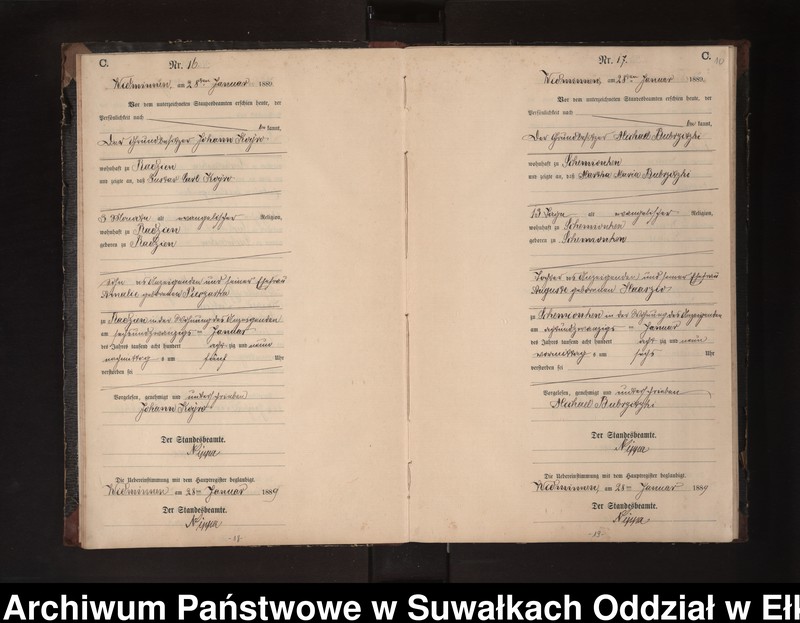 C.
Nr. 16.
Widminnen, am 28ten Januar 1889.
Vor dem unterzeichneten Standesbeamten erschien heute, der
Persönlichkeit nach
be kannt,
Der Grundbesitzer Johann Koyro
wohnhaft zu Radzien
und zeigte an, daß Gustav Carl Koyro
3 Monate alt evangelischer Religion,
wohnhaft zu Radzien
geboren zu Radzien
Sohn des Anzeigenden und seiner Ehefrau
Amalie geborenen
zu Radzien in der Wohnung des Anzeigenden
am sechsundzwanzigsten Januar
des Jahres tausend acht hundert achtzig und neun
nachmittag s um fünf Uhr
verstorben sei
Vorgelesen, genehmigt und unterschrieben
Johann Koyro
Der Standesbeamte.
Die Uebereinstimmung mit dem Hauptregister beglaubigt.
Widminnen am 28ten Januar 1889
Der Standesbeamte.
C.
Nr. 17.
Widminnen, am 28ten Januar 1889.
Vor dem unterzeichneten Standesbeamten erschien heute, der
Persönlichkeit nach
be kannt,
Der Grundbesitzer Michael Bubrzitzki
wohnhaft zu Schemionken
und zeigte an, daß Martha Maria Bubrzitzki
13 Tage alt evangelischer Religion,
wohnhaft zu Schemionken
geboren zu Schemionken
Tochter des Anzeigenden und seiner Ehefrau
Auguste geborenen
zu Schemionken in der Wohnung des Anzeigenden
am achtundzwanzigsten Januar
des Jahres tausend acht hundert achtzig und neun
vormittag s um sechs Uhr
verstorben sei
Vorgelesen, genehmigt und unterschrieben
Michael Bubrzitzki
Der Standesbeamte.
Die Uebereinstimmung mit dem Hauptregister beglaubigt.
Widminnen am 28ten Januar 1889
Der Standesbeamte.
Archiwum Państwowe w Suwałkach Oddział w Ełk